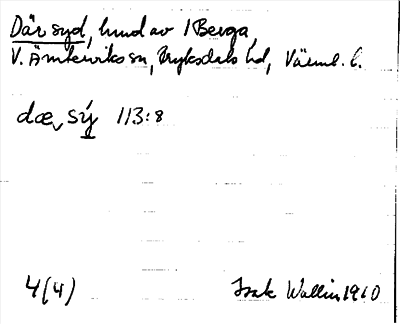 Där syd, hund av 1 Berga,
V. Ämterviks sn, Fryksdals hd, Värml. l.
dœ, sý 113:8
4(4) Isak Wallin 1910